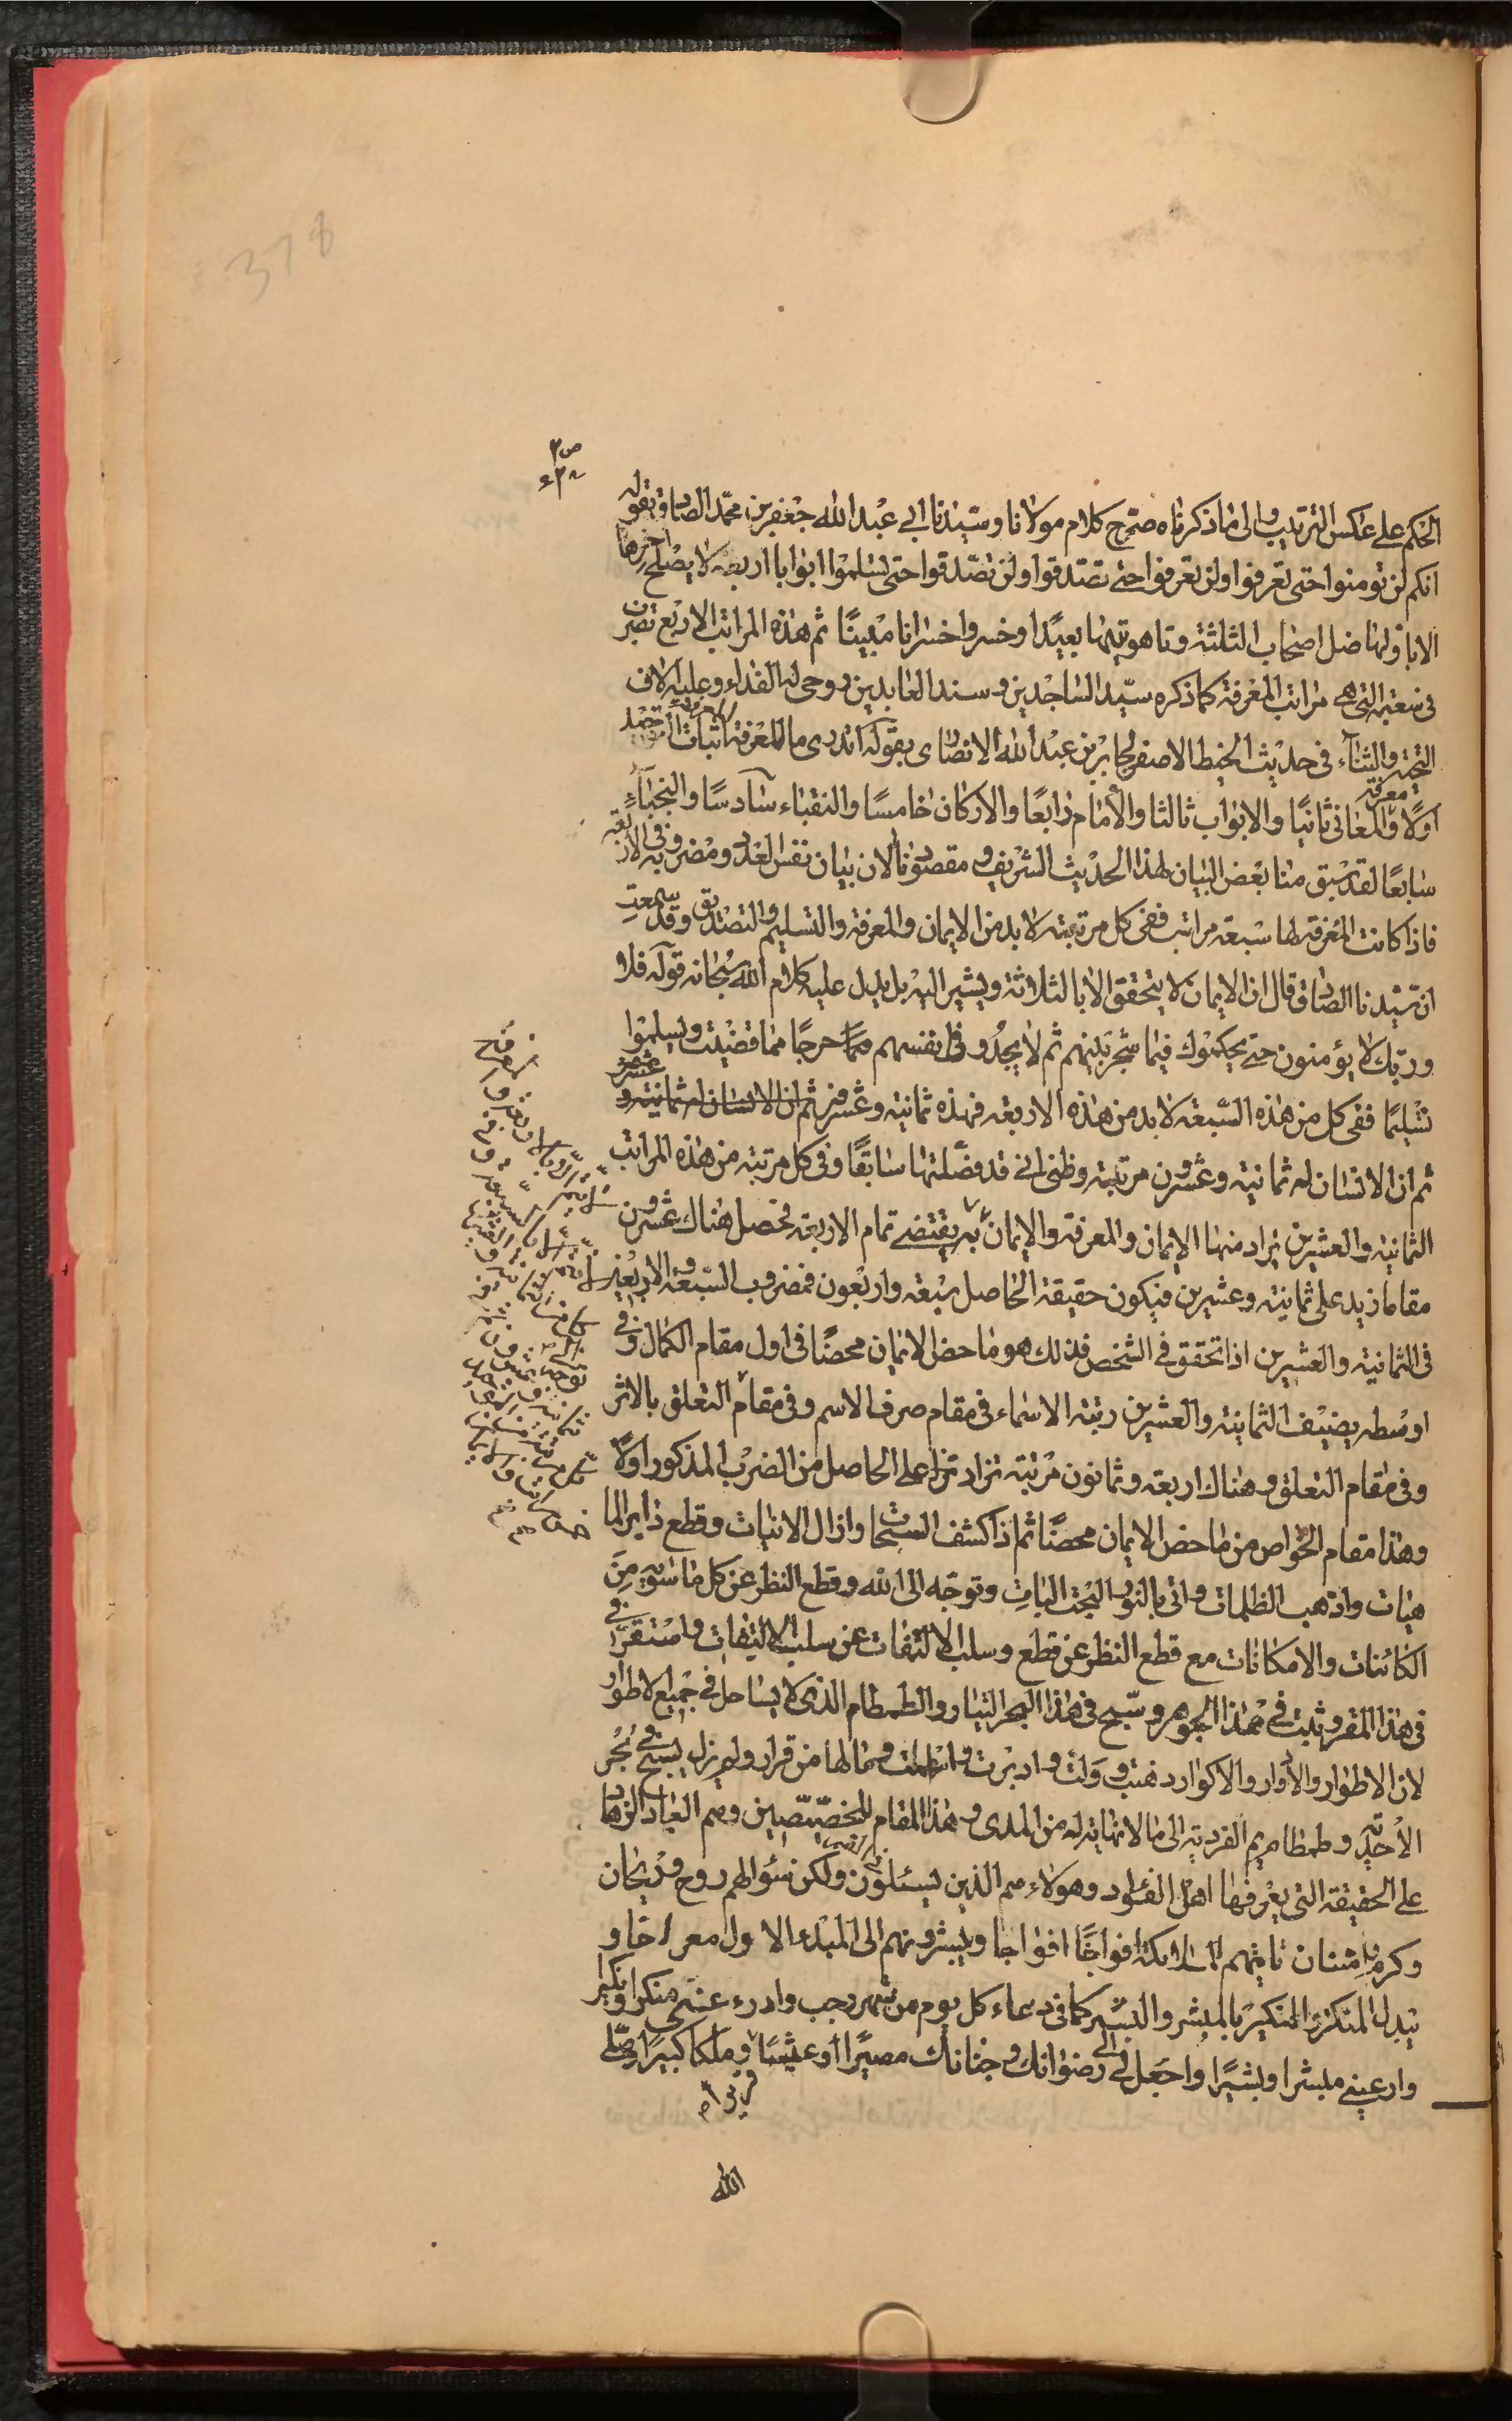 378
الحكم على عكس الترتيب والى ما ذكرناه صرّح كلام مولانا وسيّدنا ابي عبد الله جعفر بن محمّد الصادق بقوله
انكم لن تومنوا حتى تعرفوا ولن تعرفوا حتى تصّدقوا ولن تصّدقوا حتى تسلموا ابوابا اربعة لا يصلح اخرها
الا باولها ضل اصحاب الثلثة وتاهو تيها بعيدًا وخسروا خسرانا مبينًا ثم هذه المراتب الاربع تضرب
في سبعة التي هي مراتب المعرفة كما ذكره سيّد الساجدين وسند العابدين روحي له الفداء وعليه الاف
التحية والثناء في حديث الخيط الاصفر لجابر بن عبد الله الانصارى بقوله اتدرى ما المعرفة المعرفة اثبات التوحيد
اولًا ومعرفة المعاني ثانيًا والابواب ثالثا والأمام رابعًا والاركان خامسًا والنقباء سادسًا والنجباء
سابعًا لقد سبق منا بعض البيان لهذا الحديث الشريف ومقصودنا الان بيان نفس العدد ومضروبه في الاربعة
فاذا كانت المعرفة لها سبعة مراتب ففي كل مرتبة لا بد من الايمان والمعرفة والتسليم والتصديق وقد سمعت
ان سيّدنا الصادق قال ان الايمان لا يتحقق الا بالثلاثة ويشير اليه بل يدل عليه كلام الله سبحانه قوله فلا
وربّك لا يؤمنون حتى يحكموك فيما شجر بينهم ثم لا يجدو في انفسهم حرجًا مما قضيت ويسلموا
تسليمًا ففي كل من هذه السّبعة لا بد من هذه الاربعة فهذه ثمانية وعشرون ثم ان الانسان له ثمانية و
ثم ان الانسان له ثمانية وعشرون مرتبة وظني اني قد فصّلتها سابقًا وفي كل مرتبة من هذه المراتب
الثمانية والعشرين يراد منها الايمان والمعرفة والايمان به يقتضي تمام الاربعة فحصل هناك عشرون
مقاما زيد على ثمانية وعشرين فيكون حقيقة الحاصل سبعة واربعون فمضروب السّبعة والاربعين
في الثمانية والعشرين اذا تحقق في الشخص فذلك هو ما حض الايمان محضًا في اول مقام الكمال وفي
اوسطه يضيف الثمانية والعشرين رتبة الاسماء في مقام صرف الاسم وفي مقام التعلق بالاثر
وفي مقام التعلق وهناك اربعة وثمانون مرتبة تزاد على الحاصل من الضرب المذكور اولًا
وهذا مقام الخواص من ما حض الايمان محضًا ثم اذا كشف السبحات وازال الانيات وقطع دابر الما
هيات واذهب الظلمات واتى بالنور البحت البات وتوجّه الى الله وقطع النظر عن كل ما سويه من
الكائنات والامكانات مع قطع النظر عن قطع وسلب الالتفات عن سلب الالتفات واستقر في
في هذا المقر وثبت في هذا الجوهر وسبّح في هذا البحر التيار والطمطام الذى لا يساحل في جميع الاطوار
لان الاطوار والأدوار والاكوار ذهبت وولت وادبرت وما لها من قرار ولم يزل يسبح في بحر
الأحدية وطمطام يم الفردية الى ما لا نهاية له من المدى وهذا المقام للخصّيصين وهم العباد الزهاد
على الحقيقة التي يعرفها اهل الفؤاد وهولاء هم الذين يسئلون في القبر ولكن سئوالهم روح وريحان
وكرم وامتنان تاتيهم الملائكة افواجًا افواجا ويبشرونهم الى المبدء الاول
يبدل المنكر والنكير بالمبشر والبشير كما في دعاء كل يوم من شهر رجب وادرء عني منكرا ونكيرا
وارعيني مبشرا وبشيرا واجعل لي الى رضوانك وجنانك مصيرًا وعيشا قريرا وملكا كبيرا وصلّى
الله